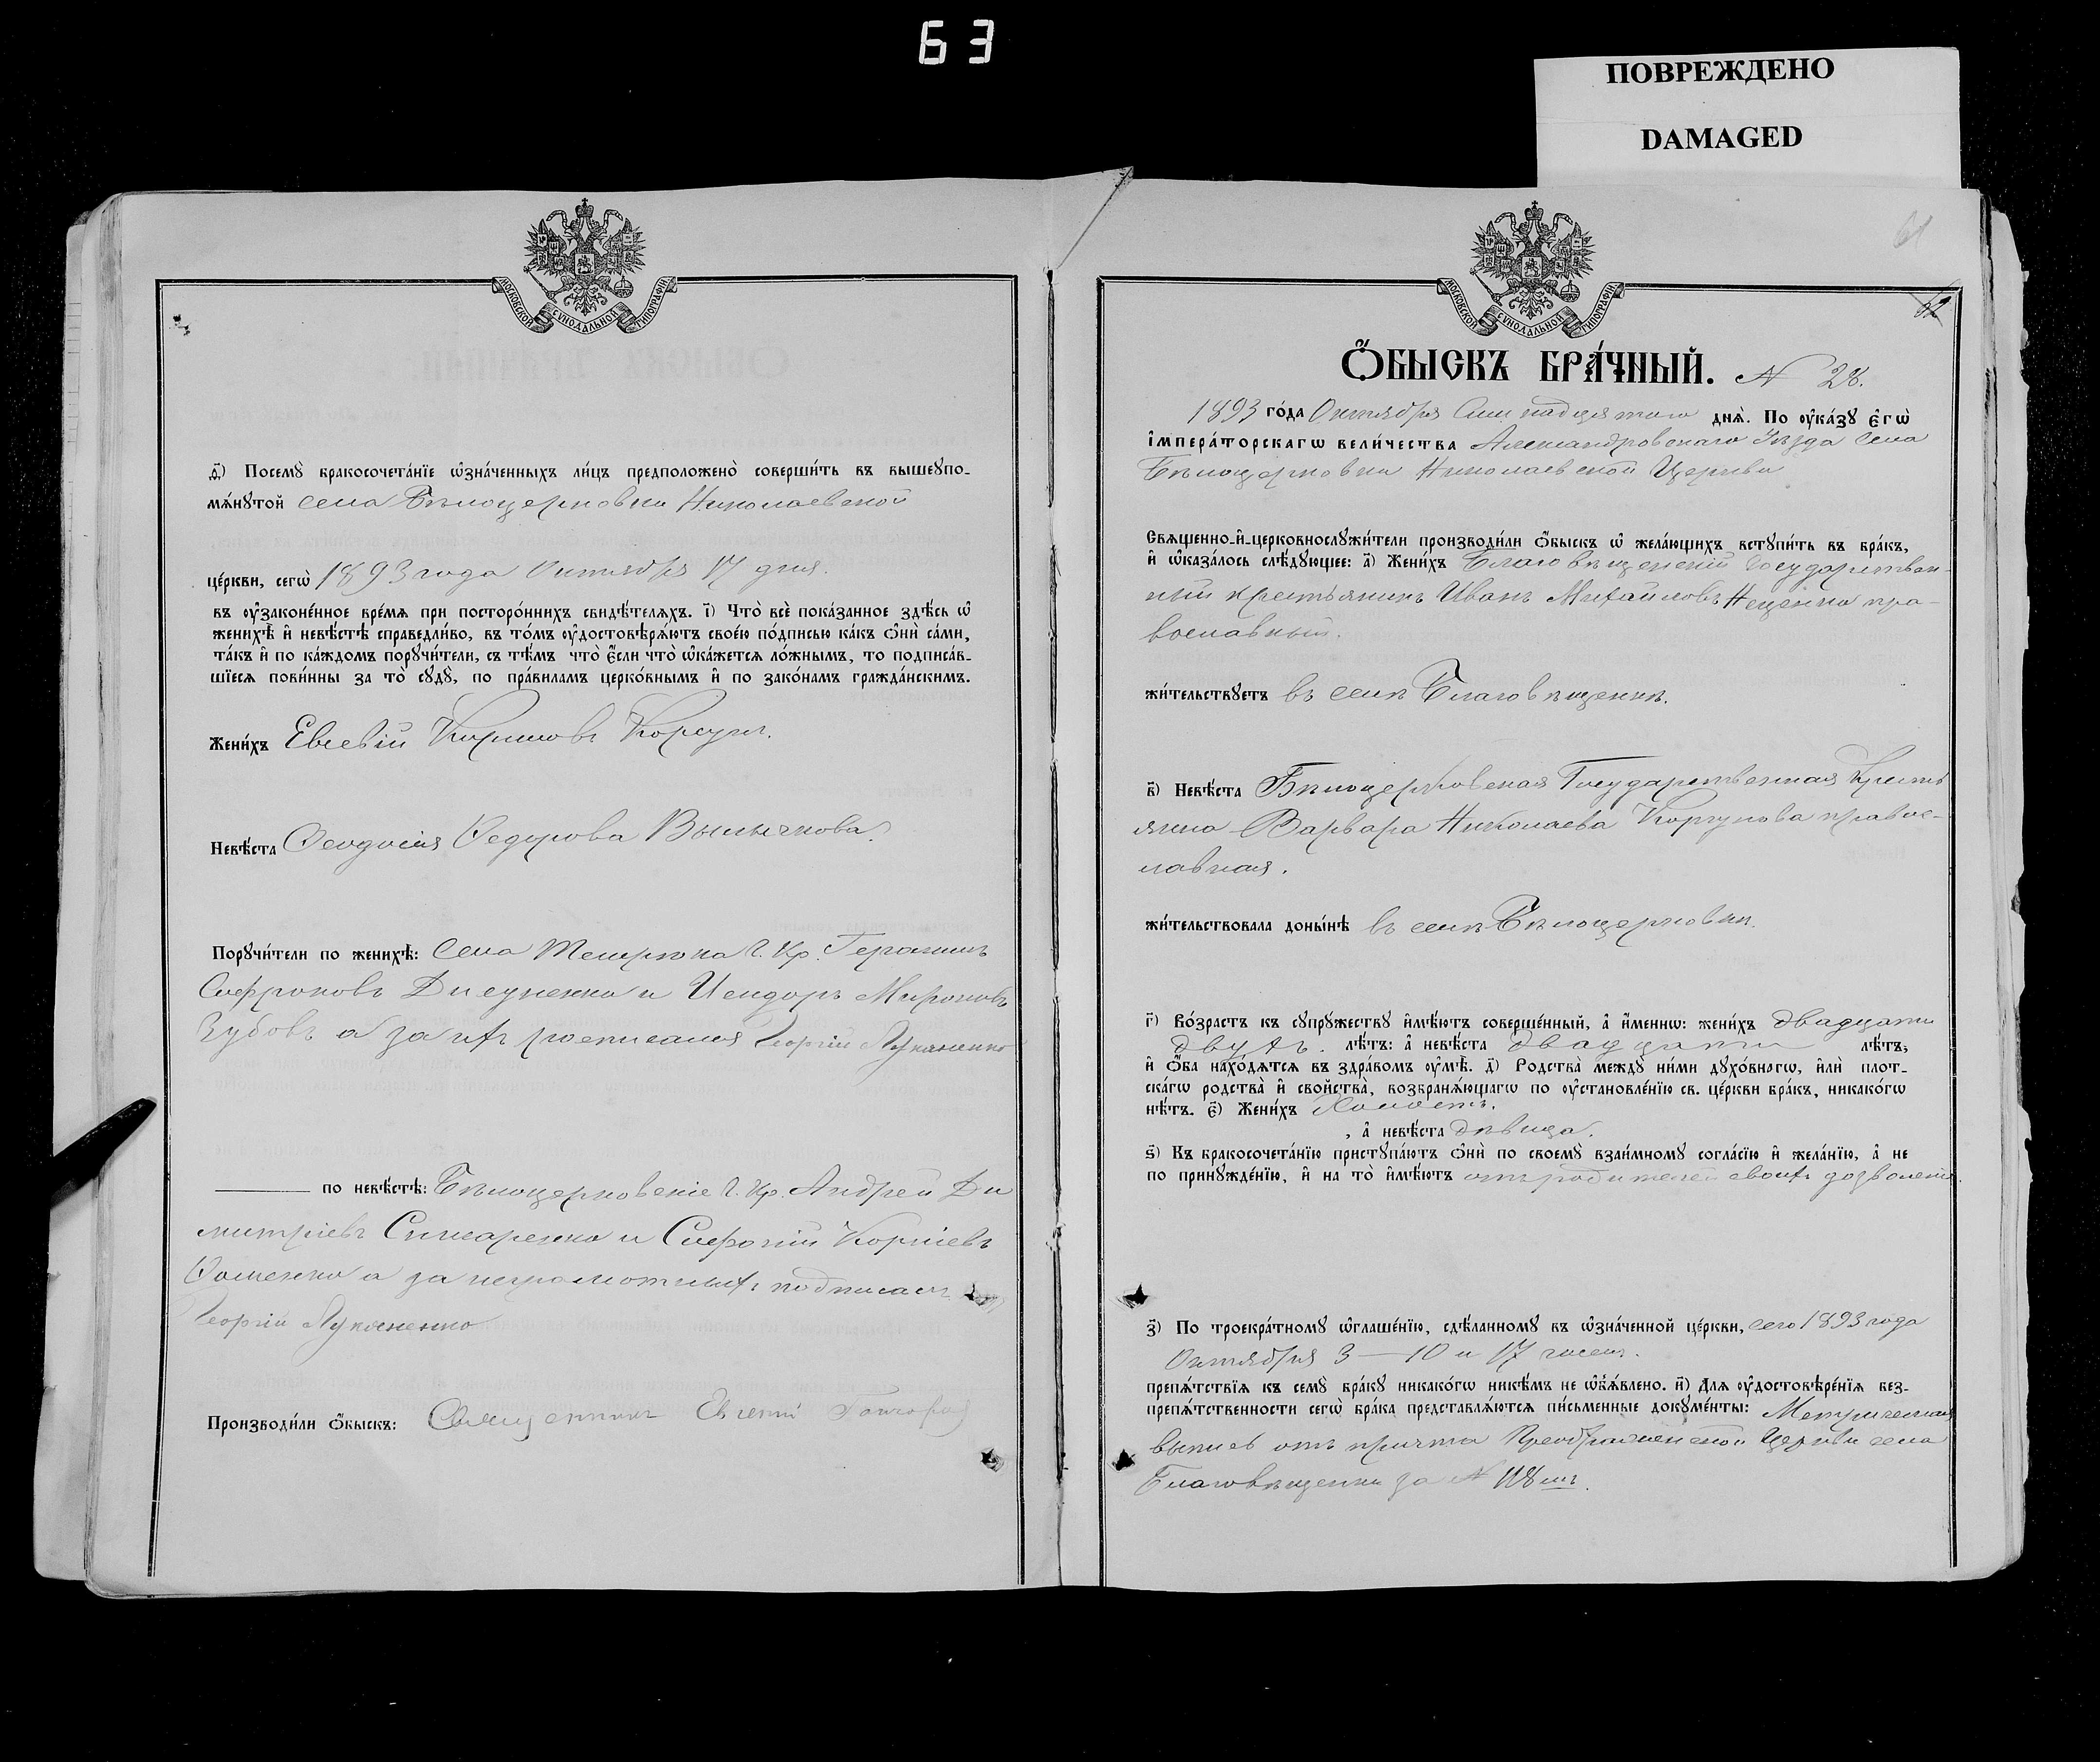 63
ПОВРЕЖДЕНО
DAMAGED
МОСКОВСКОЙ СѴНОДАЛЬНОЙ ТИПОГРАФІИ
Посемꙋ̀ бракосочета́нїе ѡ҆зна́ченныхъ ли́цъ предположено̀ соверши́ть въ вышеꙋпо-
мѧ́нꙋтой села Бѣлоцерковки Николаевской
це́ркви, сегѡ̀ 1893 года Октября 17 дня.
въ ᲂу҆законе́нное вре́мѧ при посторо́ннихъ свидѣ́телѧхъ. і҃) Что̀ всѐ пока́занное здѣ́сь ѡ҆
женихѣ̀ и҆ невѣ́стѣ справедли́во, въ то́мъ ᲂу҆достовѣрѧ́ютъ свое́ю по́дписью ка́къ ѻ҆нѝ са́ми,
та́къ и҆ по ка́ждомъ порꙋчи́тели, съ тѣ́мъ что̀ є҆́сли что̀ ѡ҆ка́жетсѧ ло́жнымъ, то подписа́в-
шїесѧ пови́нны за то̀ сꙋдꙋ̀, по пра́виламъ церко́внымъ и҆ по зако́намъ гражда́нскимъ.
Жени́хъ Евсевій Кириловъ Корсунъ.
Невѣ́ста Ѳеодосія Ѳедорова
Порꙋчи́тели по женихѣ̀: села Г. Кр. Герасимъ
Софроновъ и Исидоръ Мироновъ
Зубовъ а за ихъ росписался Георгій Лукяненко
по невѣ́стѣ: Бѣлоцерковскіе Г. Кр. Андрей Ди
митріевъ и Софоній Корніевъ
Ѳоменко а за неграмотныхъ подписался
Георгій Лукяненко
Производи́ли ѻ҆́быскъ: Священникъ Евгеній
61
62
Ѻ҆́БЫСКЪ БРА́ЧНЫЙ. N 28.
1893 го́да Октября Семнадцятаго днѧ̀. По ᲂу҆ка́зꙋ є҆гѡ̀
і҆мпера́торскагѡ вели́чества Александровскаго Уѣзда села
Бѣлоцерковки Николаевской Церкви
Свѧщенно-и҆-церковнослꙋжи́тели производи́ли ѻ҆́быскъ ѡ҆ жела́ющихъ встꙋпи́ть въ бра́къ,
и҆ ѡ҆каза́лось слѣ́дꙋющее: а҃) Жени́хъ Благовѣщенскій Государствен-
ный крестьянинъ Иванъ Михайловъ Нещенко пра-
вославный.
жи́тельствꙋетъ въ селѣ Благовѣщенкѣ.
в҃) Невѣ́ста Бѣлоцерковская Государственная Кресть
янка Варвара Николаева Коргунова правос-
лавная.
жи́тельствовала доны́нѣ въ селѣ Бѣлоцерковки.
г҃) Во́зрастъ къ сꙋпрꙋжествꙋ и҆мѣ́ютъ соверше́нный, а҆ и҆́меннѡ: жени́хъ двадцати
двухъ. лѣ́тъ: а҆ невѣ́ста двадцати лѣ́тъ,
и҆ ѻ҆́ба нахо́дѧтсѧ въ здра́вомъ ᲂу҆мѣ̀. д҃) Родства̀ междꙋ̀ ни́ми дꙋхо́внагѡ, и҆лѝ плот-
ска́гѡ родства̀ и҆ сво́йства, возбранѧ́ющагѡ по ᲂу҆становле́нїю св. це́ркви бра́къ, никако́гѡ
нѣ́тъ. є҃) Жени́хъ Холостъ.
, а҆ невѣ́ста дѣвица.
ѕ҃) Къ бракосочета́нїю пристꙋпа́ютъ ѻ҆нѝ по своемꙋ̀ взаи́мномꙋ согла́сїю и҆ жела́нїю, а҆ не
по принꙋжде́нїю, и҆ на то̀ и҆мѣ́ютъ отъ родителей своихъ дозволеніе.
з҃) По троекра́тномꙋ ѡ҆глаше́нїю, сдѣ́ланномꙋ въ ѡ҆зна́ченной це́ркви, сего 1893 года
Октября 3 — 10 и 17 чиселъ.
препѧ́тствїѧ къ семꙋ̀ бра́кꙋ никако́гѡ никѣ́мъ не ѡ҆бѧ́влено. и҃) Длѧ ᲂу҆достовѣре́нїѧ без-
препѧ́тственности сегѡ̀ бра́ка представлѧ́ютсѧ пи́сьменные докꙋме́нты: Метрическая
выпись отъ причта Преображенской Церкви села
Благовѣщенки за N 118мъ.